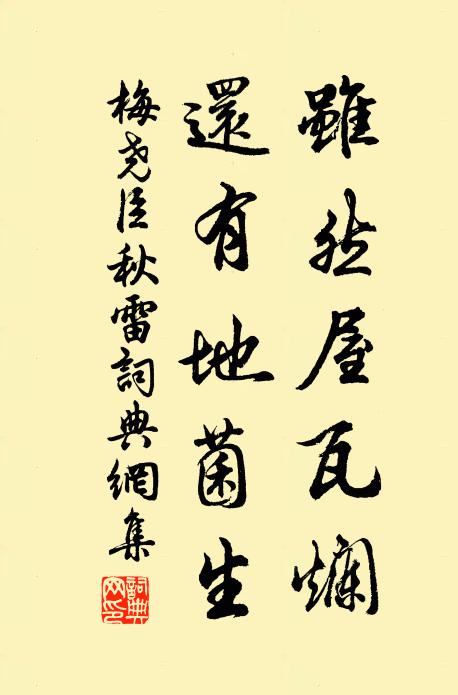 雖然屋瓦爛
還有地菌生
梅尧臣秋雷詞典網集
詞典